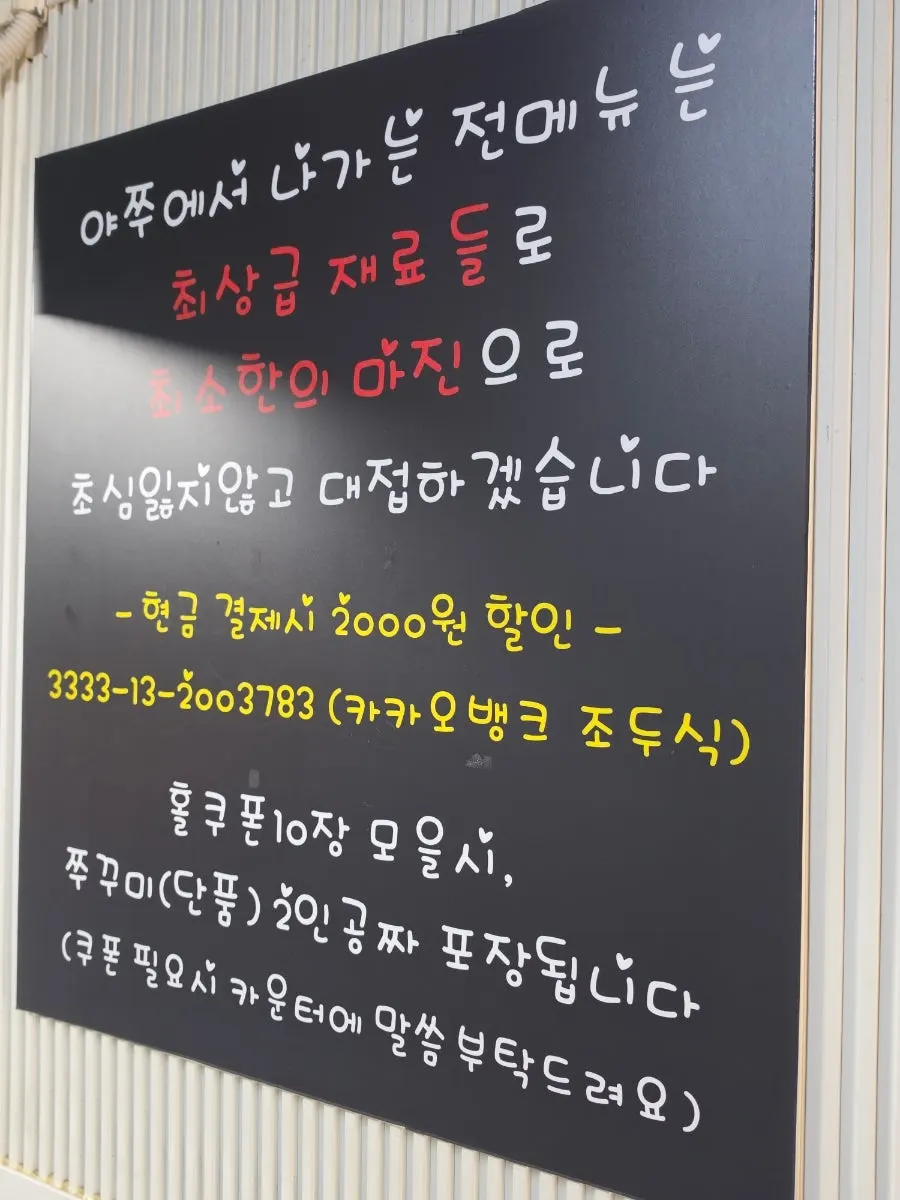 야쭈에서 나가는 전메뉴는
최상급 재료들로
최소한의 마진으로
초심잃지않고 대접하겠습니다
-현금 결제시 2000원 할인-
3333-13-2003783 (카카오뱅크 조두식)
홀쿠폰10장 모을시,
쭈꾸미(단품) 2인공짜 포장됩니다
(쿠폰 필요시 카운터에 말씀 부탁드려요)